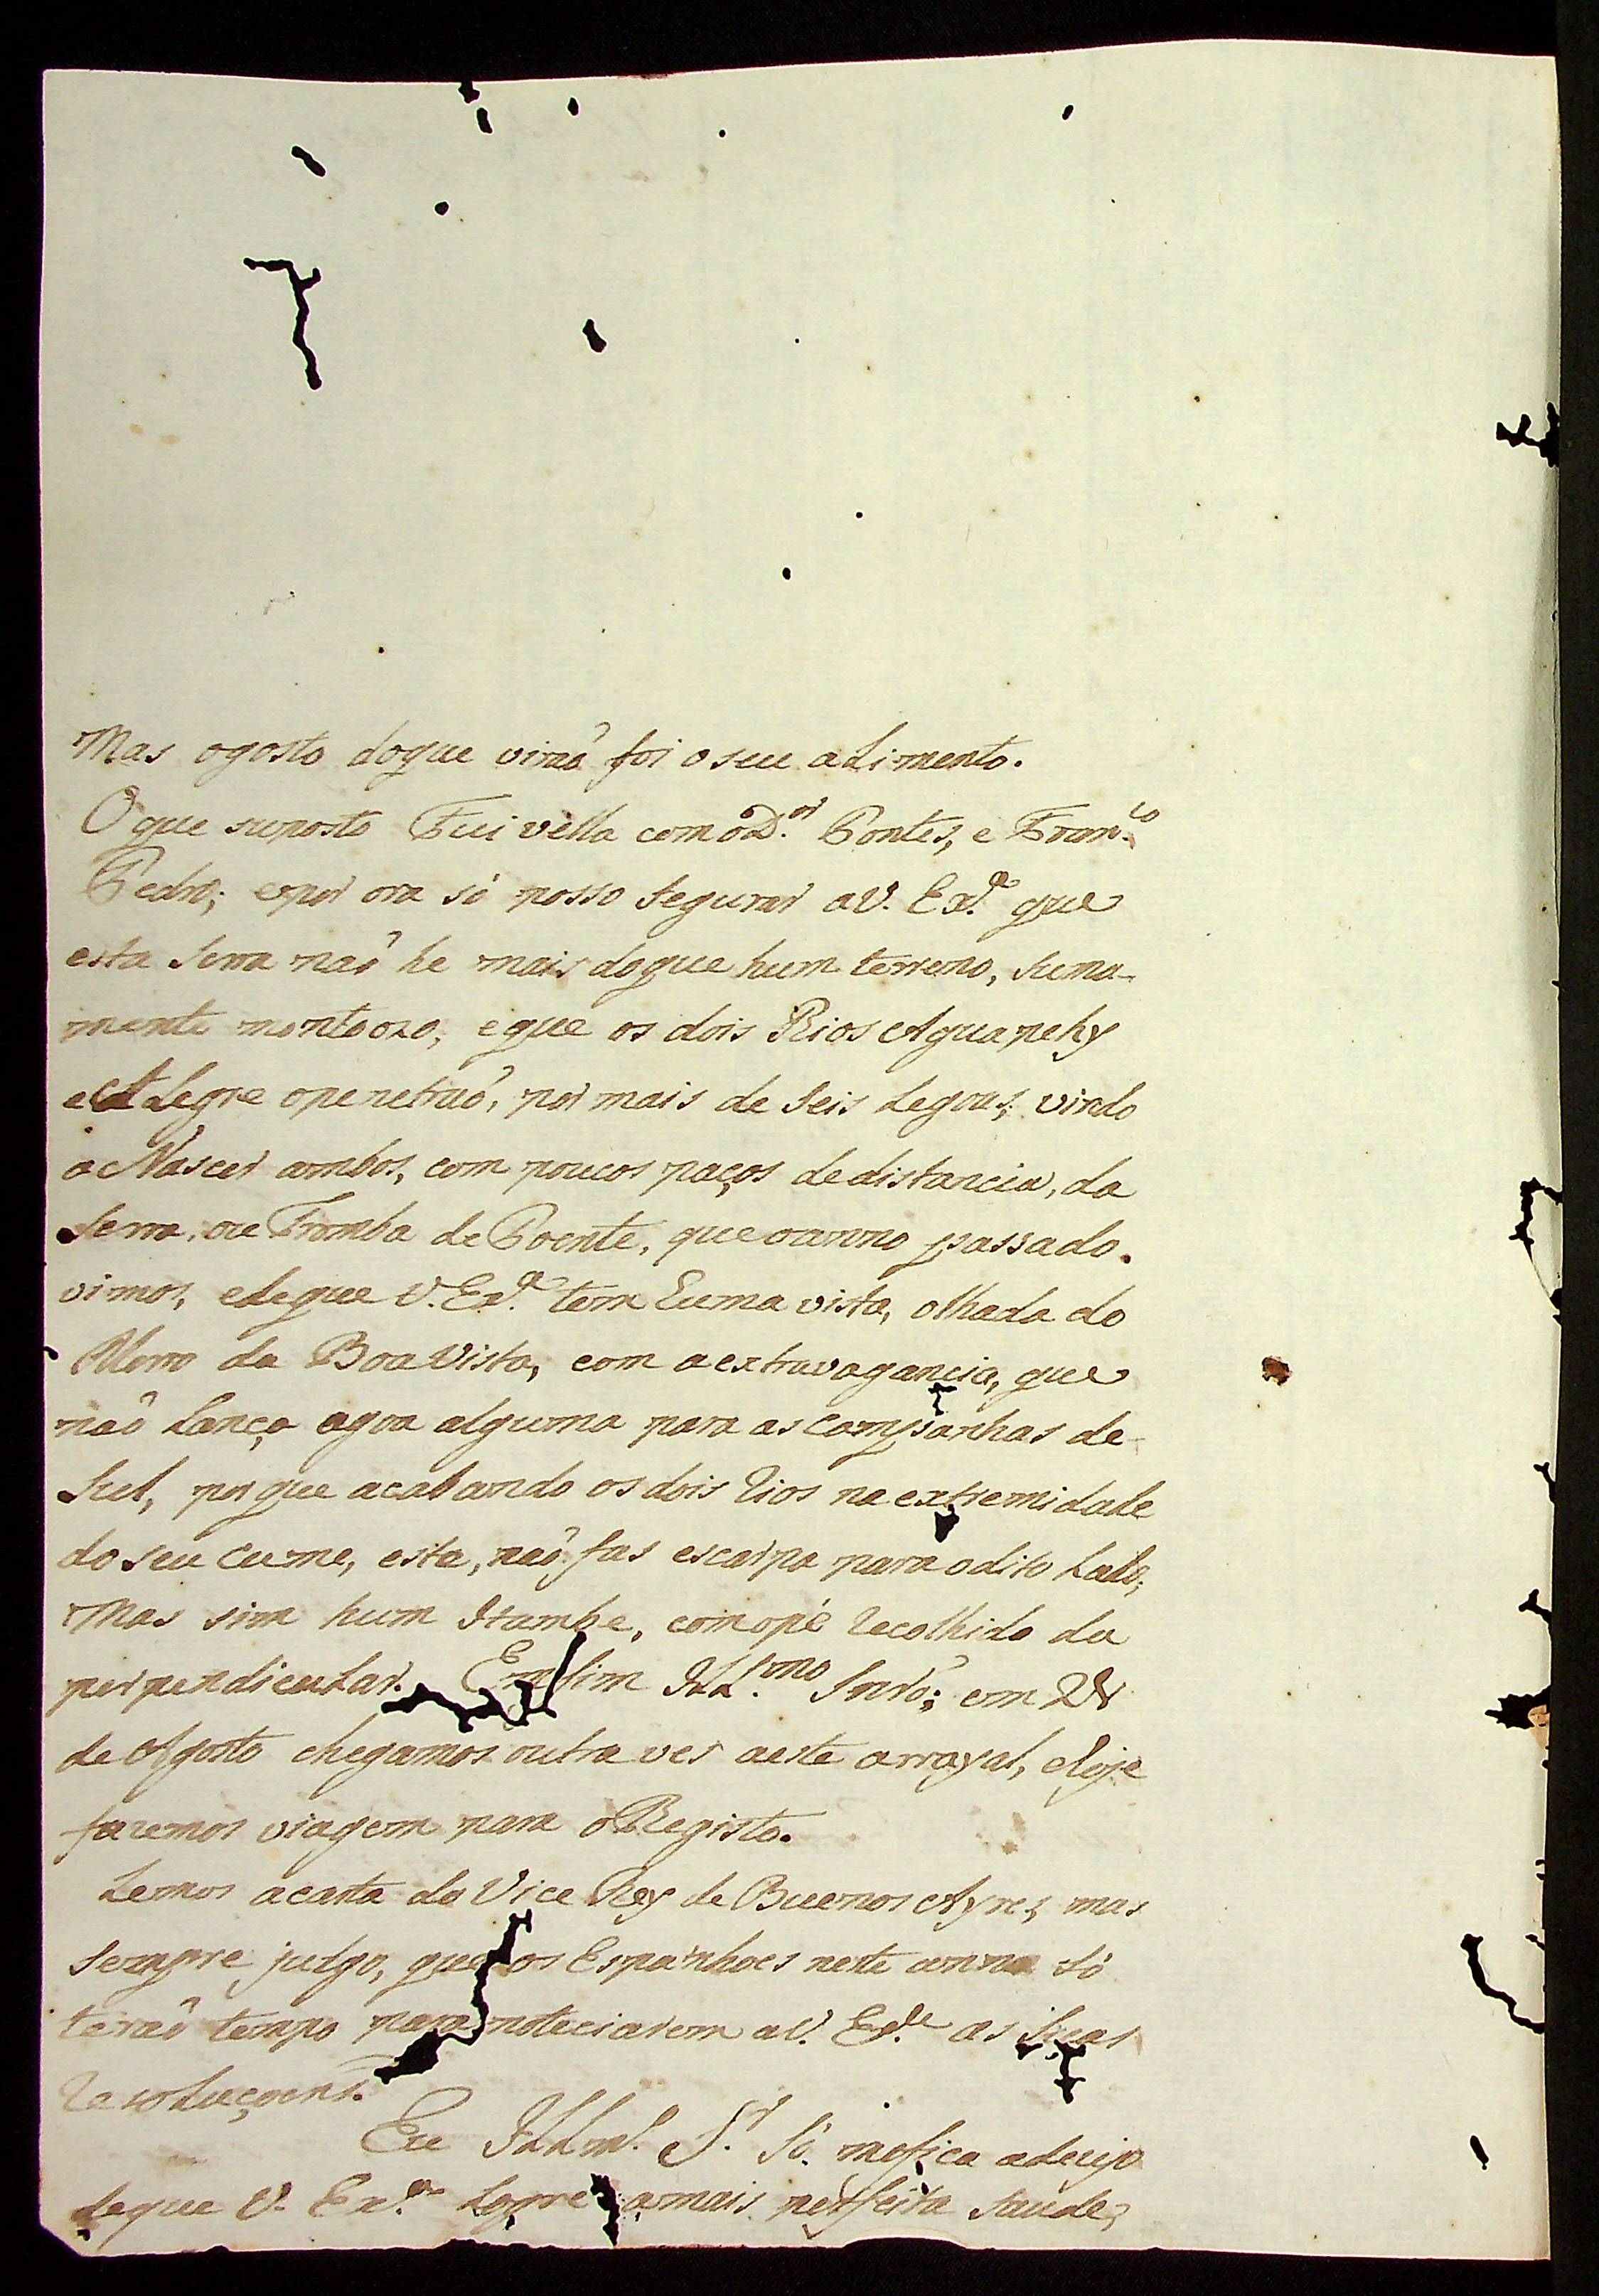 Mas ogosto doque viraõ foi o seu aLimento.
O que suposto Fui vella com o D.or Pontes, e Fran.co
Pedro; e por ora só posso segurar a V. Ex.a que
esta serra naõ he mais do que hum terreno, suma-
mente montoozo, e que os dois Rios Aguapehy
e ALegre openetraõ, por mais de seis Legoas; vindo
a Nascer ambos, com poucos paços dedistancia, da
serra, ou Tromba de Poente, que oanno passado.
vimos, edeque V. Ex.a tem huma vista, olhada do
Morro da Boa Vista, com a extravagancia, que
naõ Lança agoa alguma para as Campanhas de
Sul, porque acabando os dois rios na extremidade
do seu cume, esta, naõ fas escarpa para odito Lado;
Mas sim hum Itambe, com opé recolhido da
perpendicuLar. Em fim ILL.mo Snr̃o; em 28
de Agosto chegamos outra ves aeste arrayal, ehoje
faremos viagem para o Registo.
Lemos acarta do Vice Rey de Buenos Ayres, mas
sempre julgo, que os Espanhoes neste anno só
teraõ tempo para noteciarem aV. Ex.a as suas
resoLuçoens.
Eu ILLm.o S.r Só mefica adezejo
deque V. Ex.a Logre amais perfeita saude,